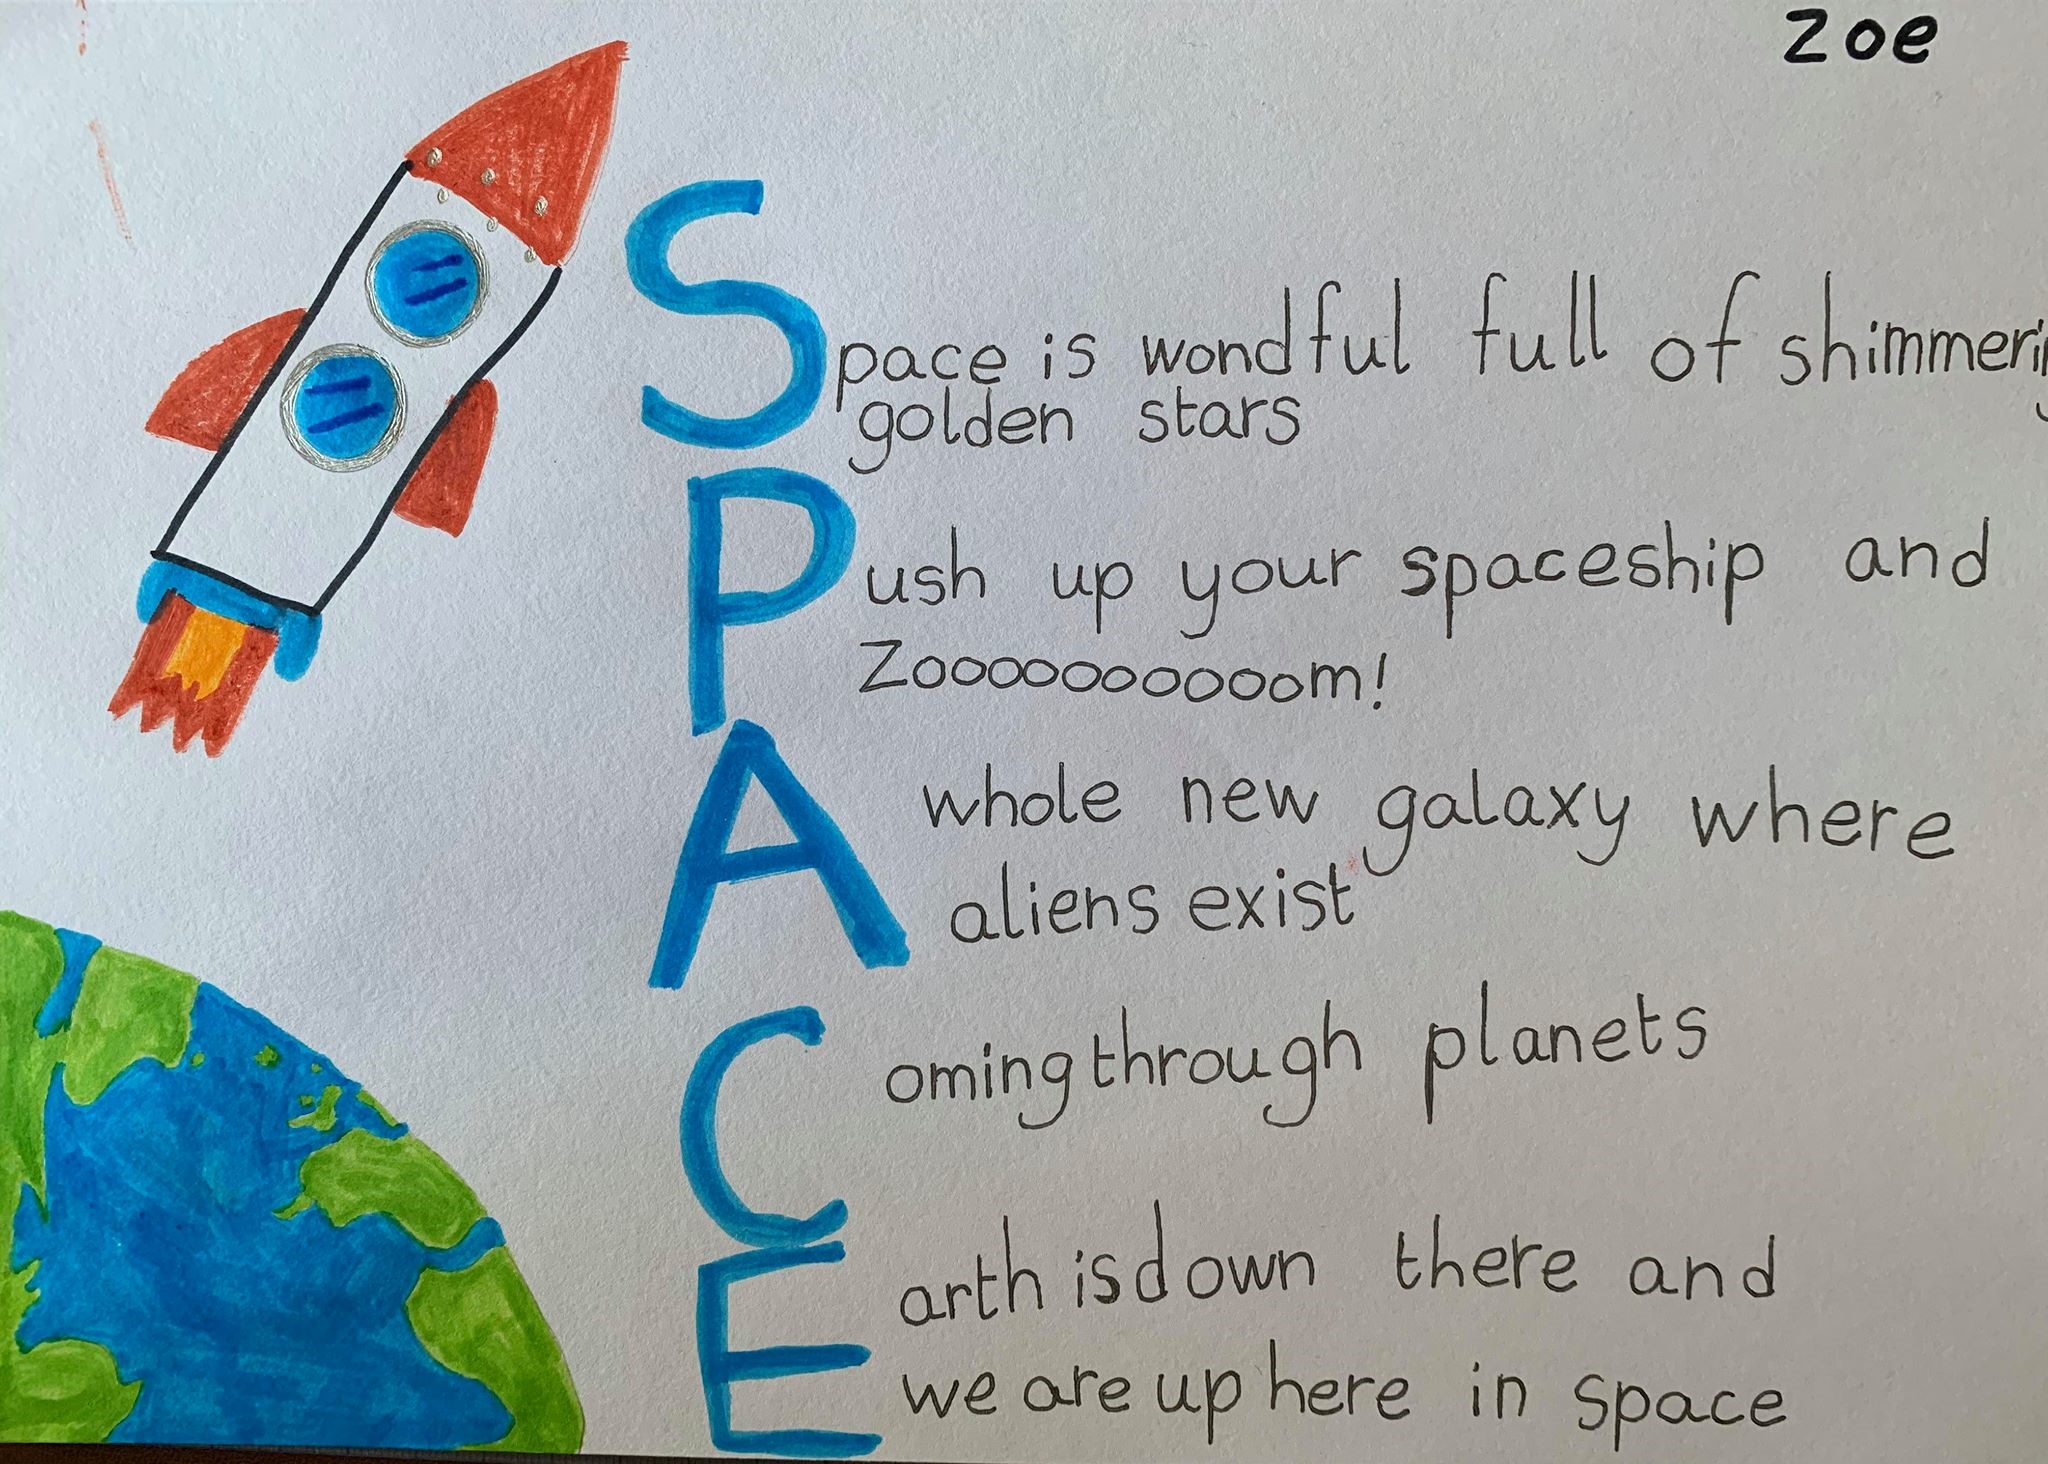 zoe
Space is wondful full of shimmering
golden stars
Push up your spaceship and
Zooooooooooom!
A whole new galaxy where
aliens exist
Coming through planets
Earth is down there and
we are up here in space